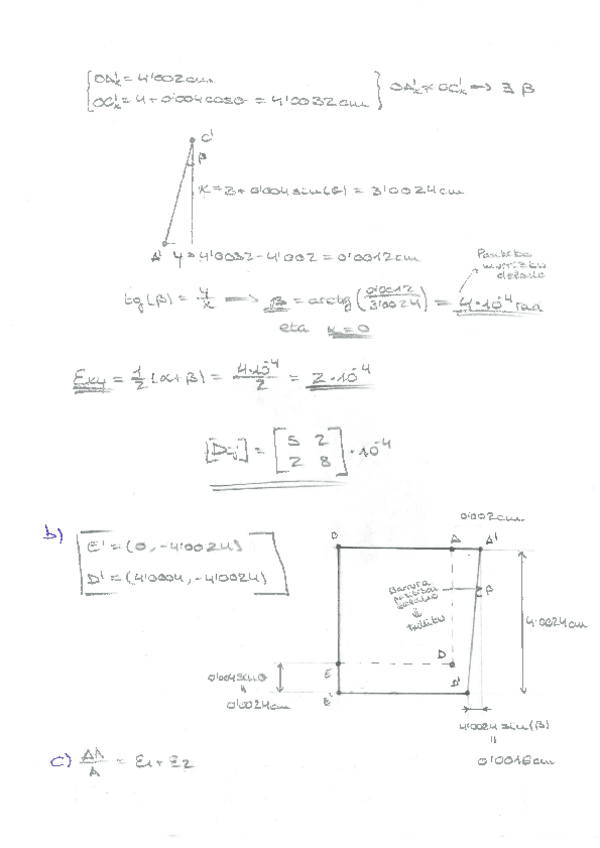 OA'x = 4'002cm
OC'x = 4 + 0'004cosθ = 4'0032cm
OA'x ≠ OC'x → ∃ β
C'
β
x = 3 + 0'004 sin(θ) = 3'0024cm
A' y = 4'0032 - 4'002 = 0'0012cm
tg(β) = y/x → β = arctg(0'0012/3'0024) = 4·10⁻⁴ rad
eta α = 0
Exy = 1/2 (α+β) = 4·10⁻⁴/2 = 2·10⁻⁴
[Dij] = [5 2
2 8] · 10⁻⁴
b)
E' = (0, -4'0024)
D' = (4'0004, -4'0024)
0'002cm
O A A'
β
4'0024cm
D
E
D'
E'
0'004sinθ
=
0'0024cm
4'0024 sin(β)
=
0'0016cm
c) ΔA/A = ε1 + ε2